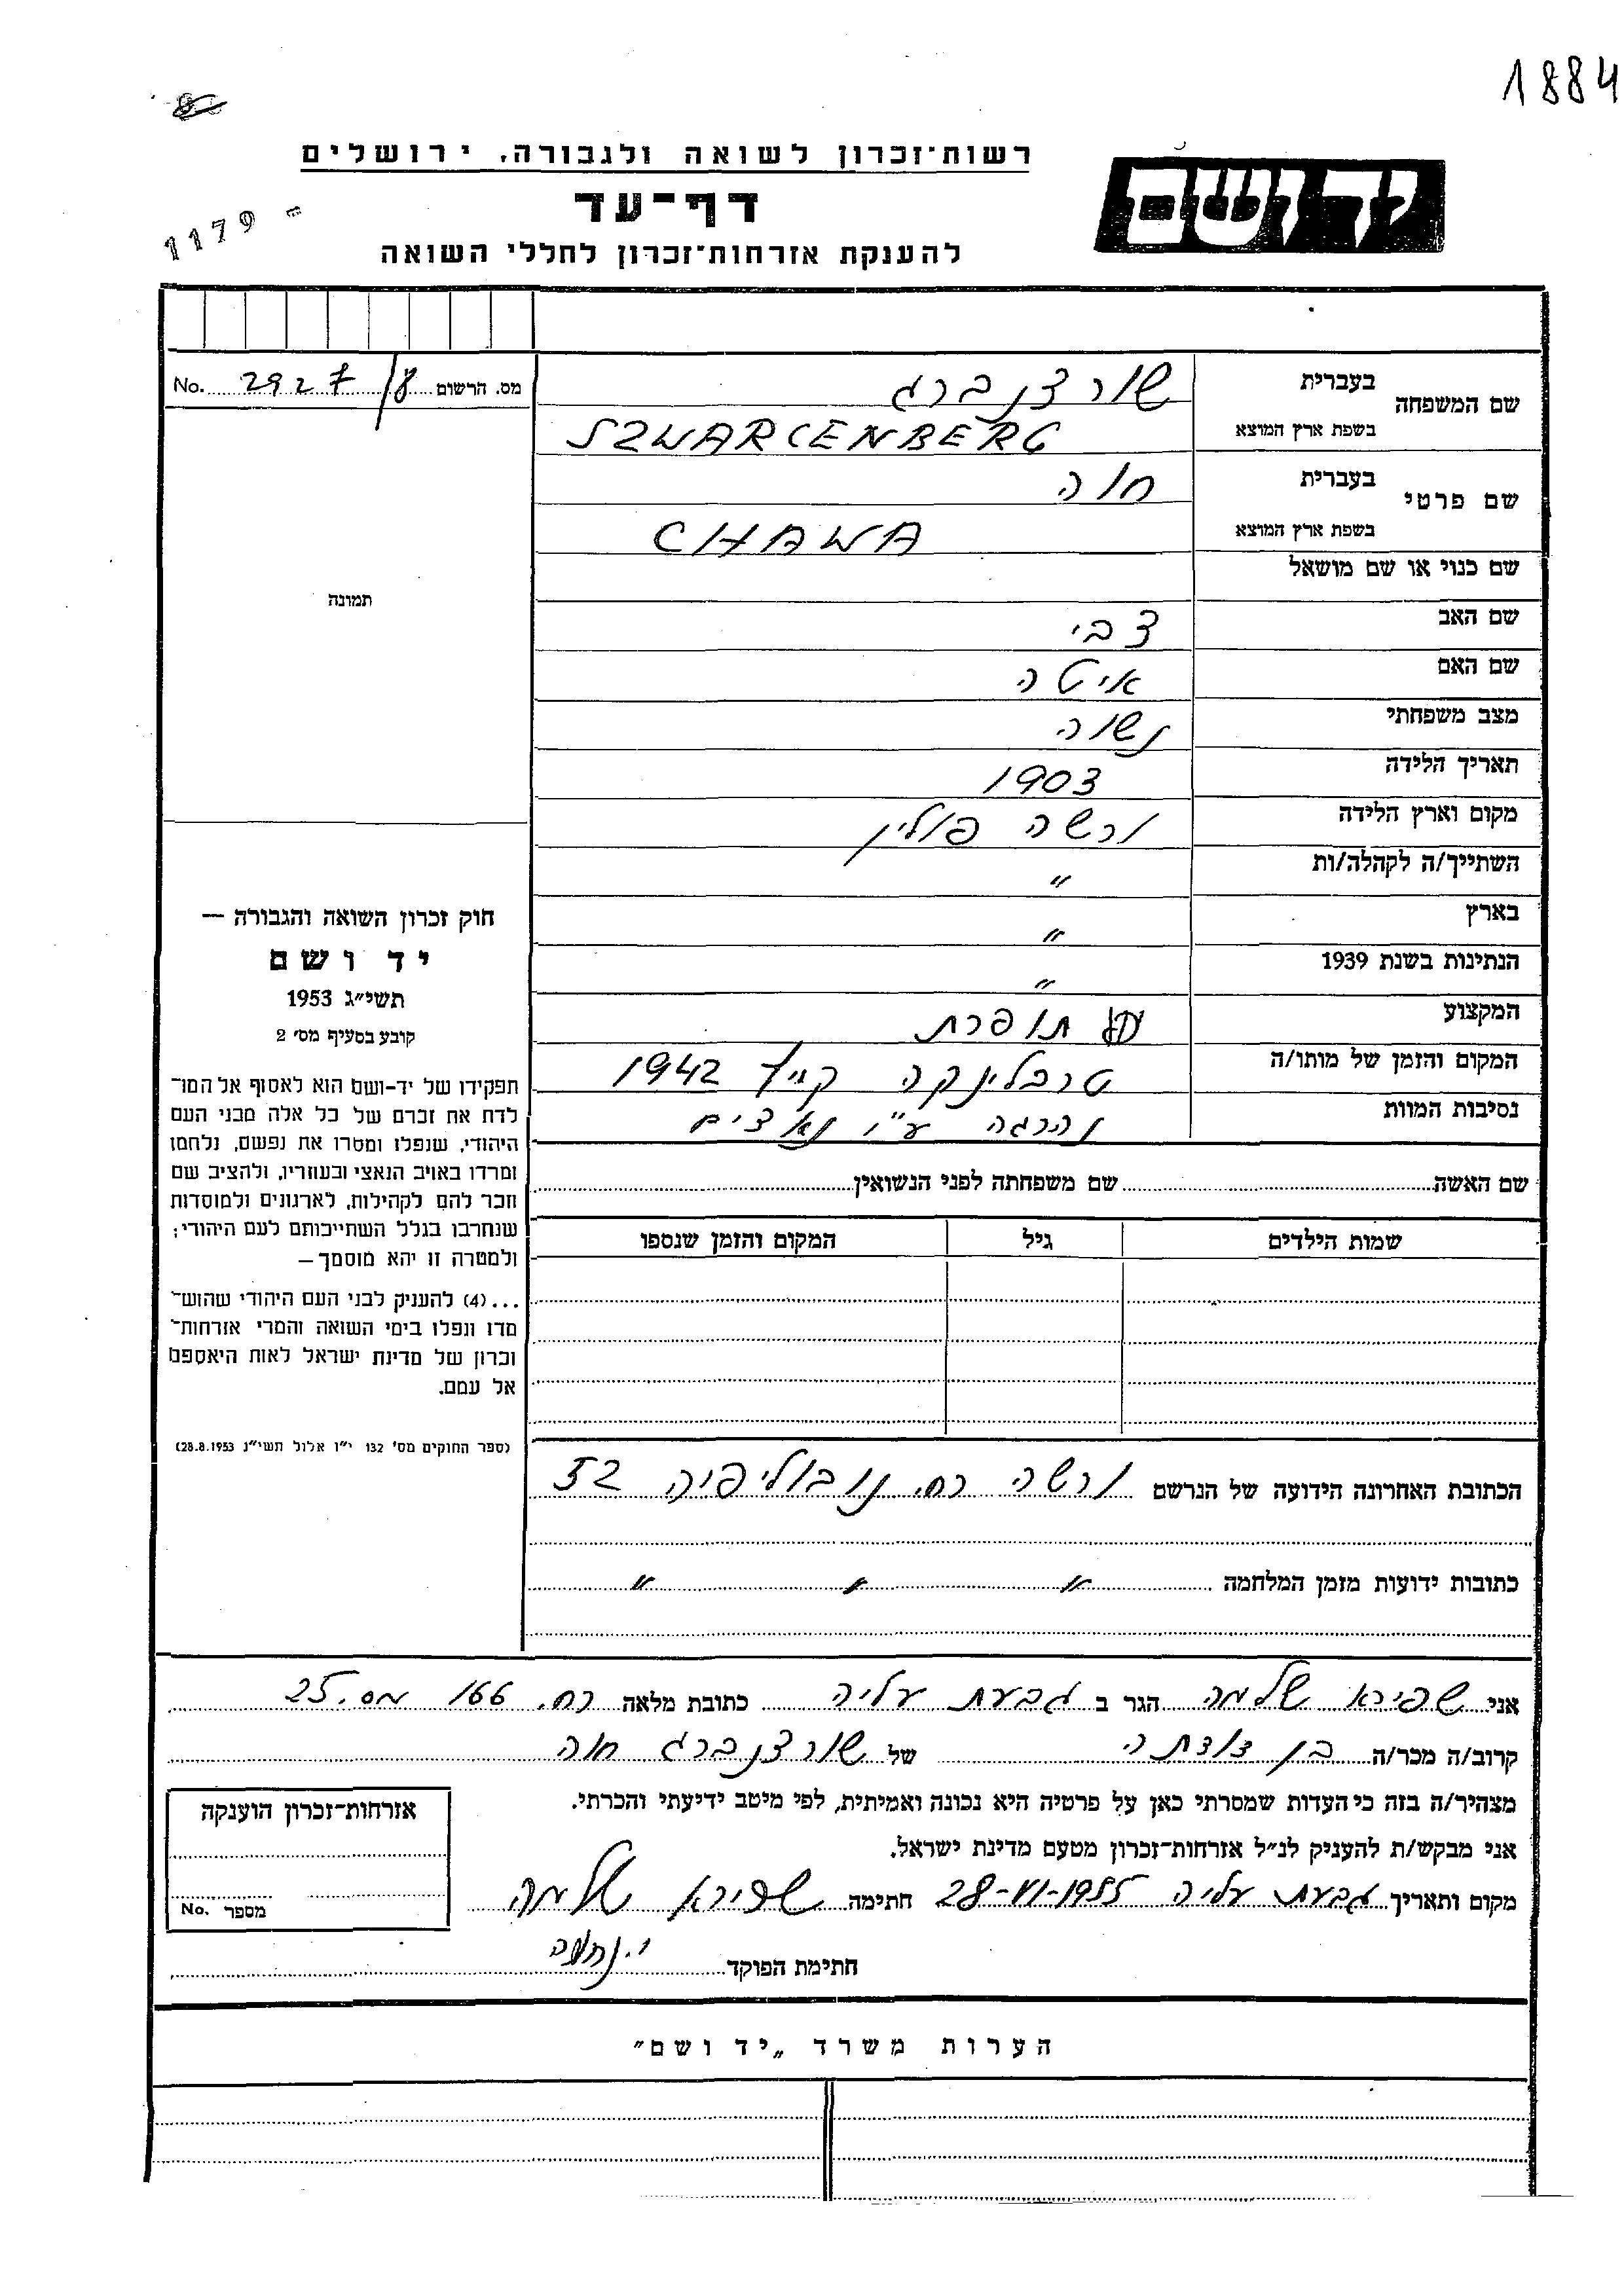 1884
רשות־זכרון לשואה ולגבורה, ירושלים
יד ושם
דף־עד
1179
להענקת אזרחות־זכרון לחללי השואה
שם המשפחה בעברית שורצנברג
בשפת ארץ המוצא SZWARCENBERG
מס. הרשום 2927/8 No.
שם פרטי בעברית חוה
בשפת ארץ המוצא CHAWA
שם כנוי או שם מושאל
תמונה
שם האב צבי
שם האם איטה
מצב משפחתי נשוה
תאריך הלידה 1903
מקום וארץ הלידה ורשה פולין
השתייך/ה לקהלה/ות "
בארץ "
הנתינות בשנת 1939 "
המקצוע תופרת
המקום והזמן של מותו/ה טרבלינקה קיץ 1942
נסיבות המוות נהרגה ע"י נאצים
שם האשה שם משפחתה לפני הנשואין
שמות הילדים גיל המקום והזמן שנספו
חוק זכרון השואה והגבורה —
יד ושם
תשי״ג 1953
קובע בסעיף מס׳ 2
תפקידו של יד-ושם הוא לאסוף אל המו־
לדת את זכרם של כל אלה מבני העם
היהודי, שנפלו ומסרו את נפשם, נלחמו
ומרדו באויב הנאצי ובעוזריו, ולהציב שם
וזכר להם לקהילות, לארגונים ולמוסדות
שנחרבו בגלל השתייכותם לעם היהודי;
ולמטרה זו יהא מוסמך —
...(4) להעניק לבני העם היהודי שהוש־
מדו ונפלו בימי השואה והמרי אזרחות־
זכרון של מדינת ישראל לאות היאספם
אל עמם.
(ספר החוקים מס׳ 132 י״ז אלול תשי״ג 28.8.1953)
הכתובת האחרונה הידועה של הנרשם ורשה רח. נובוליפיה 52
כתובות ידועות מזמן המלחמה " " "
אני שפירא שלמה הגר ב גבעת עליה כתובת מלאה רח. 166 מס. 25
קרוב/ה מכר/ה בן דודתה של שורצנברג חוה
מצהיר/ה בזה כי העדות שמסרתי כאן על פרטיה היא נכונה ואמיתית, לפי מיטב ידיעתי והכרתי.
אני מבקש/ת להעניק לנ״ל אזרחות־זכרון מטעם מדינת ישראל.
מקום ותאריך גבעת עליה 28-VI-1955 חתימה שפירא שלמה
חתימת הפוקד
אזרחות־זכרון הוענקה
מספר No.
הערות משרד „יד ושם״